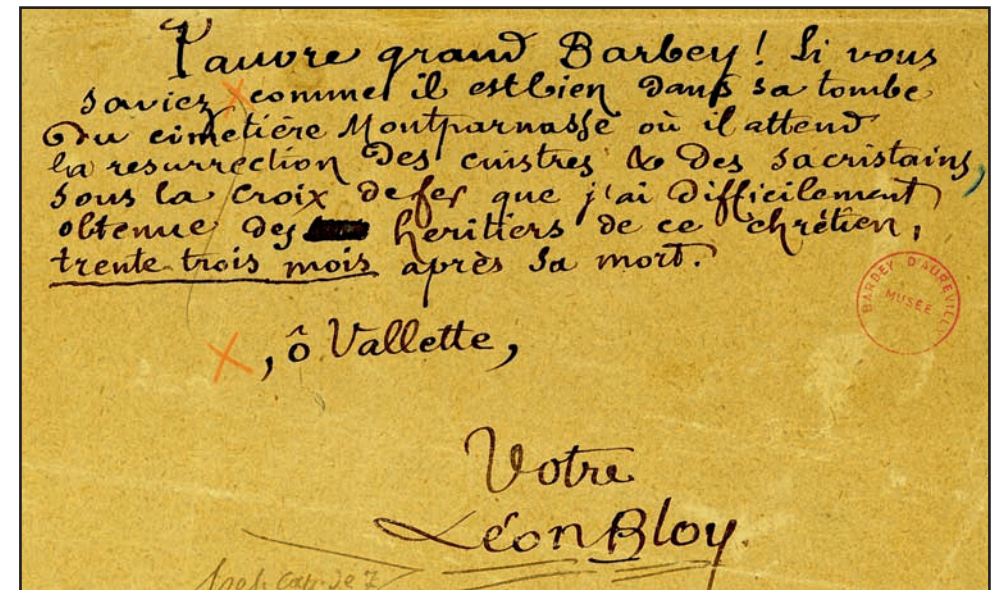 Pauvre grand Barbey! Si vous
saviez × comme il est bien dans sa tombe
du cimetière Montparnasse où il attend
la resurrection des cuistres & des sacristains,
sous la croix de fer que j'ai difficilement
obtenue des heritiers de ce chrétien,
trente trois mois après sa mort.
BARBEY D'AUREVILL
MUSÉE
×, ô Vallette,
Votre
Léon Bloy.